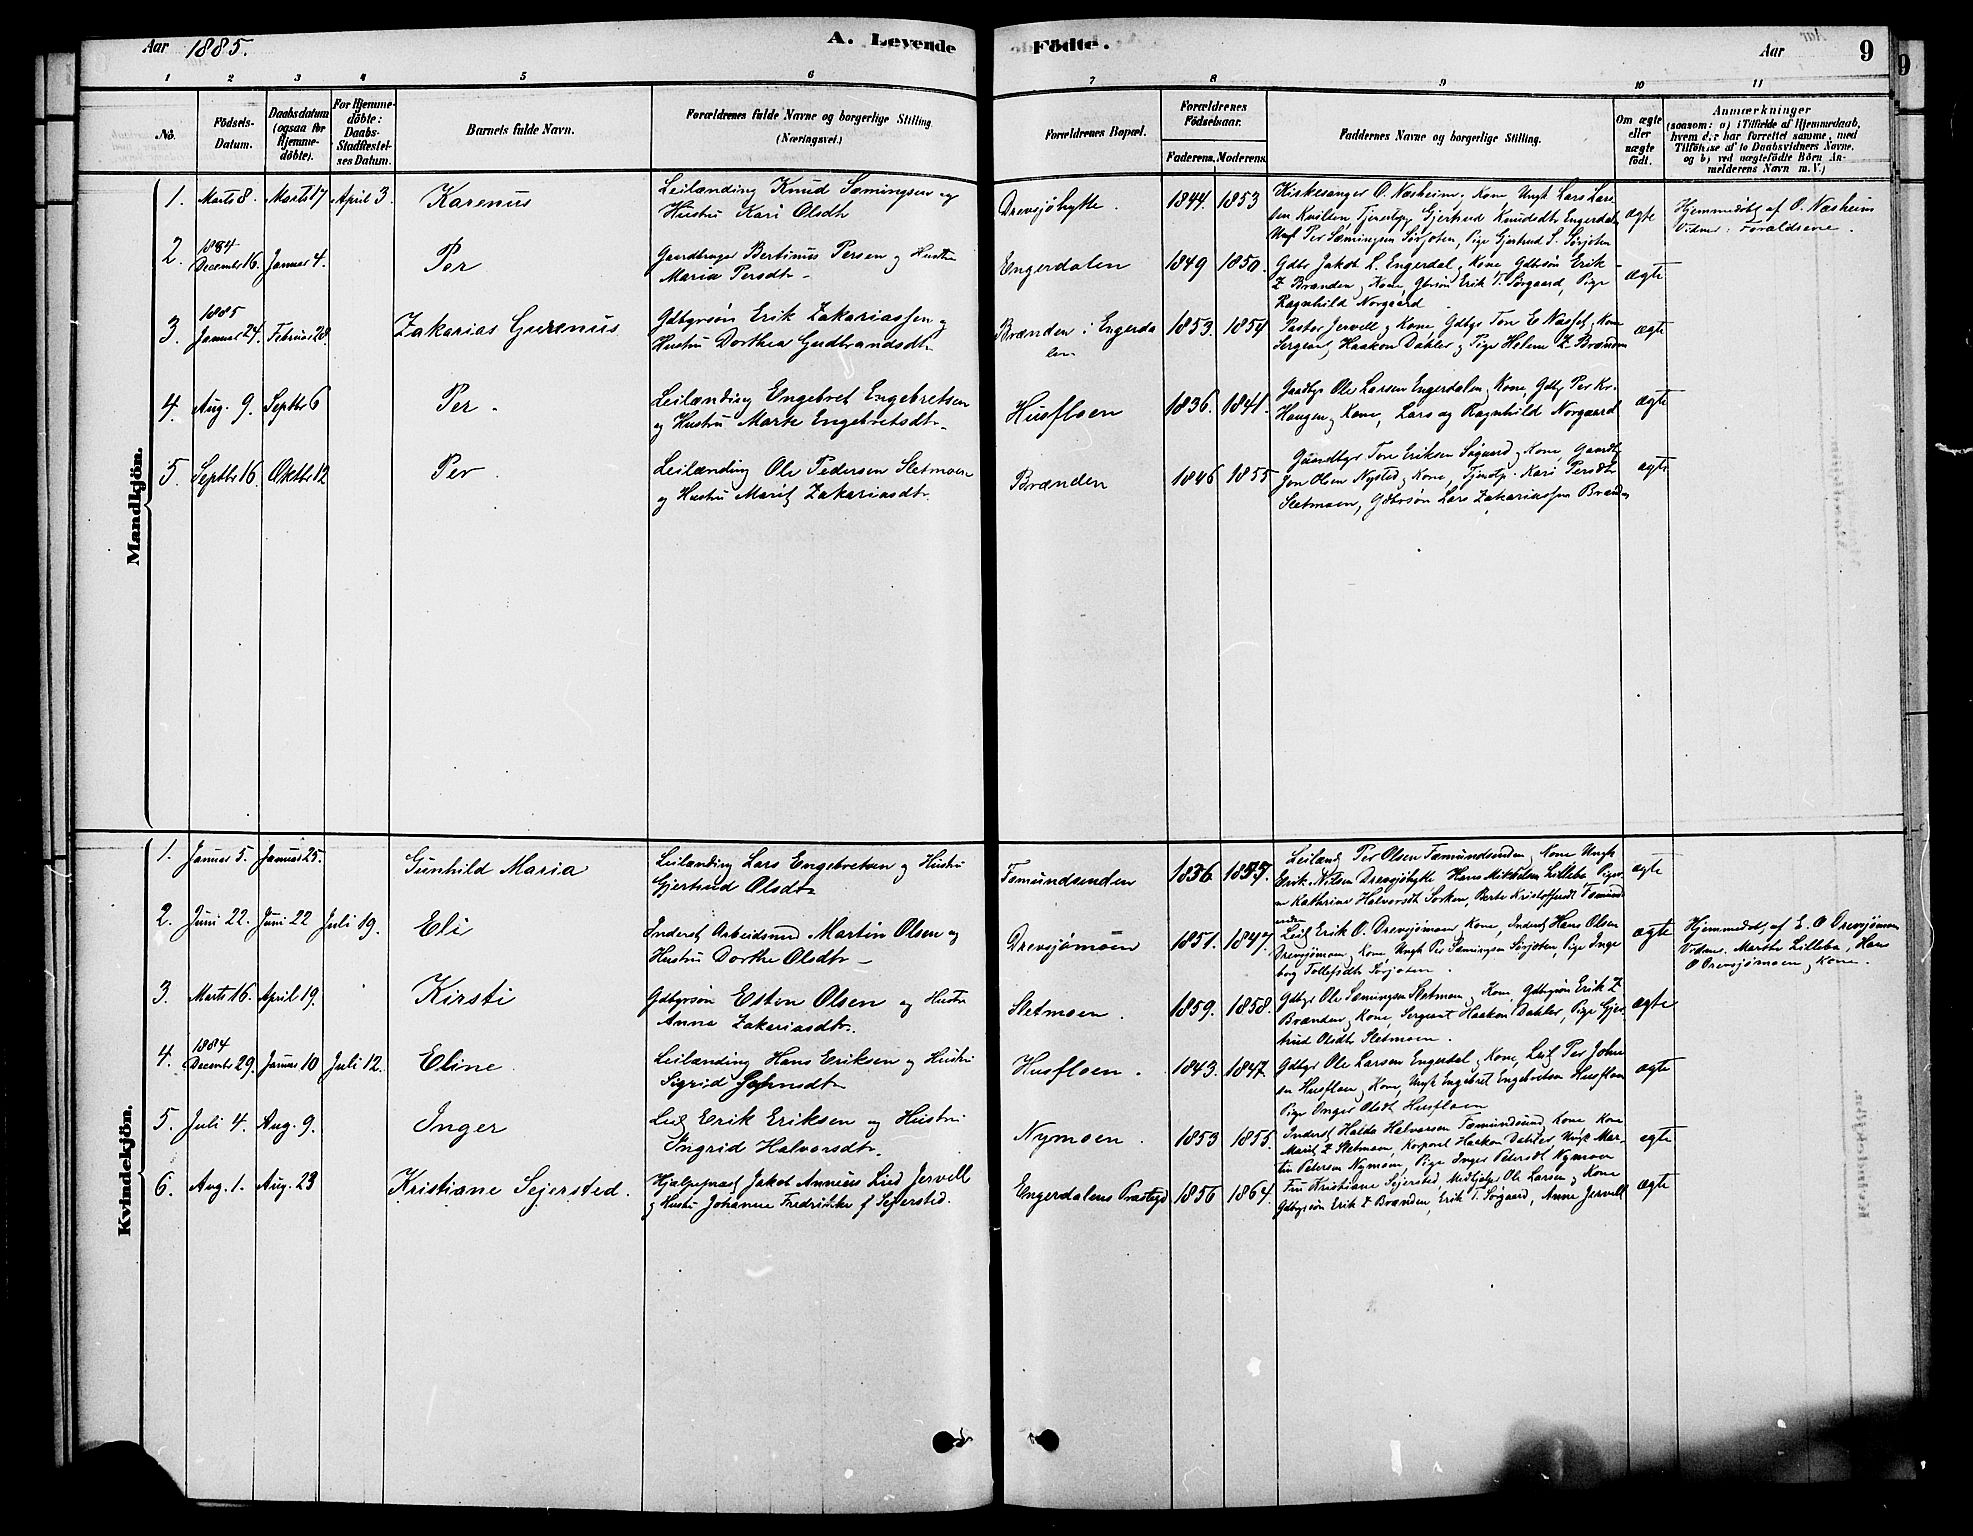 Aar 1885.
A. Levende Födte.
Aar 9
1 2 3 4 5 6 7 8 9 10 11
No.
Födsels-Datum.
Daabsdatum (ogsaa for Hjemme-döbte).
For Hjemme-döbte: Daabs-Stadfæstel-ses Datum.
Barnets fulde Navn.
Forældrenes fulde Navne og borgerlige Stilling (Næringsvei.)
Forældrenes Bopæl.
Forældrenes Födselsaar.
Faderens. Moderens.
Faddernes Navne og borgerlige Stilling.
Om ægte eller uægte födt.
Anmærkninger
(saasom: a) i Tilfælde af Hjemmedaab, hvem der har forrettet samme, med Tilföielse af to Daabsvidners Navne, og b) ved uægtefödte Börn An-melderens Navn m. V.)
Mandkjön.
1. Marts 8. Marts 17 April 3. Karenus
Leilænding Knud Sæmingsen og
Hustru Kari Olsdtr
Drevsjöhytte. 1844. 1853
Kirkesanger O. Næsheim, Kone, Ungk Lars Lars
sen Kvilten Gjertrud Knudsdtr Engerdalen
Ungk Per Sæmingsen Sorjoten, Pige Gjertrud S. Sorjoten
ægte
Hjemmedöbt af O. Næsheim
Vidner: Forældrene.
2. 1884 December 16. Januar 4. Per
Gaardbruger Bertinus Persen og Hustru
Maria Persdtr
Engerdalen 1849 1850.
Gdbr Jakob L. Engerdal, Kone, Gdbrsön Erik
Z Brænden, Kone, Gbrsön Erik T. Sorgaard, Pige
Ragnhild Norgaard
ægte
3. 1885 Januar 24. Februar 28. Zakarias Gurenus
Gdbgrsön Erik Zakariassen og
Hustru Dorthea Gudbrandsdtr
Brænden i Engerda
len 1853. 1854
Pastor Jervell og Kone, Gdbgr Tore E Næsset, Kone
Sergeant Haakon Dahler og Pige Helene Z Brænden
ægte
4. Aug. 9. Septbr 6 Per.
Leilænding Engebret Engebretsen
og Hustru Marte Engebretsdtr
Husfloen 1836. 1841.
Gaardbgr Ole Larsen Engerdalen, Kone, Gdbgr Per Kr.
Haugen, Kone, Lars og Ragnhild Norgaard
ægte
5. Septbr 16. Oktbr 12 Per.
Leilænding Ole Pedersen Sletmoen
og Hustru Marit Zakariasdtr.
Brænden 1846 1855
Gaardbgr Tore Eriksen Sögaard, Kone, Gaardbg
Jon Olsen Nysted, Kone, Tjenstp. Kari Persdtr
Sletmoen, Gdbrsön Lars Zakariassen Brænden
ægte
Kvindekjön.
1. Januar 5. Januar 25. Gunhild Maria
Leilænding Lars Engebretsen og Hustru
Gjertrud Olsdtr
Fæmundsenden 1836. 1837.
Leilænd Per Olsen Fæmundsenden, Kone Ungk
Erik Nilsen Drevsjöhytte Hans Mikkelsen Lillebo Piger
n Kathrine Halvorsdt Sorken, Berte Kristoffersdt Fæmund
enden
ægte
2. Juni 22. Juni 22 Juli 19. Eli
Inderst Arbeidsmd Martin Olsen og
Hustru Dorthe Olsdtr
Drevsjömoen 1851. 1847.
Leil Erik O. Drevsjömoen, Kone, Inderst Hans Olsen
Drevsjömoen, Kone, Ungk Per Sæmingsen Sorjoten, Pige Inge
borg Tollefsdtr Sorjoten.
ægte
Hjemmedöbt af E. O Drevsjömoen
Vidner. Marthe Lillebo, Hans
O Drevsjömoen, Kone.
3. Marts 16. April 19. Kirsti
Gdbgrsön Esten Olsen og Hustr
Anne Zakariasdtr.
Sletmoen. 1859. 1858.
Gdbgr Ole Sæmingsen Sletmoen, Kone, Gdbgrsön Erik Z
Brænden, Kone, Sergeant Haakon Dahler, Pige Gjer
trud Olsdtr Sletmoen.
ægte
4. 1884 December 29. Januar 10 Juli 12. Eline
Leilænding Hans Eriksen og Hustru
Sigrid Johnsdtr
Husfloen. 1843. 1847.
Gdbgr Ole Larsen Engerdal, Kone, Leil Per John
sen Husfloen, Kone, Ungk Engebret Engebretsen Husfloen
Pige Inger Olsdt Husfloen
ægte
5. Juli 4. Aug. 9. Inger
Leil Erik Eriksen og Hustru
Ingrid Halvorsdtr.
Nymoen. 1853 1855.
Inderst Halda Halvorsen Fæmundsund, Kone Kone
Marit Z Sletmoen, Korporal Haakon Dahler Ungk Mar-
tin Petersen Nymoen, Pige Inger Petersdt Nymoen
ægte
6. Aug. 1. Aug. 23 Kristiane Sejersted.
Hjælpepræst Jakob Annæus Lind Jervell
og Hustru Johanne Fredrikke f Sejersted.
Engerdalens Præstegd 1856 1864.
Frn Kristiane Sejersted, Medhjælp Ole Larsen, Kone
Gdbgrsön Erik Z Brænden, Erik T. Sögaard, Anne Jervell
ægte